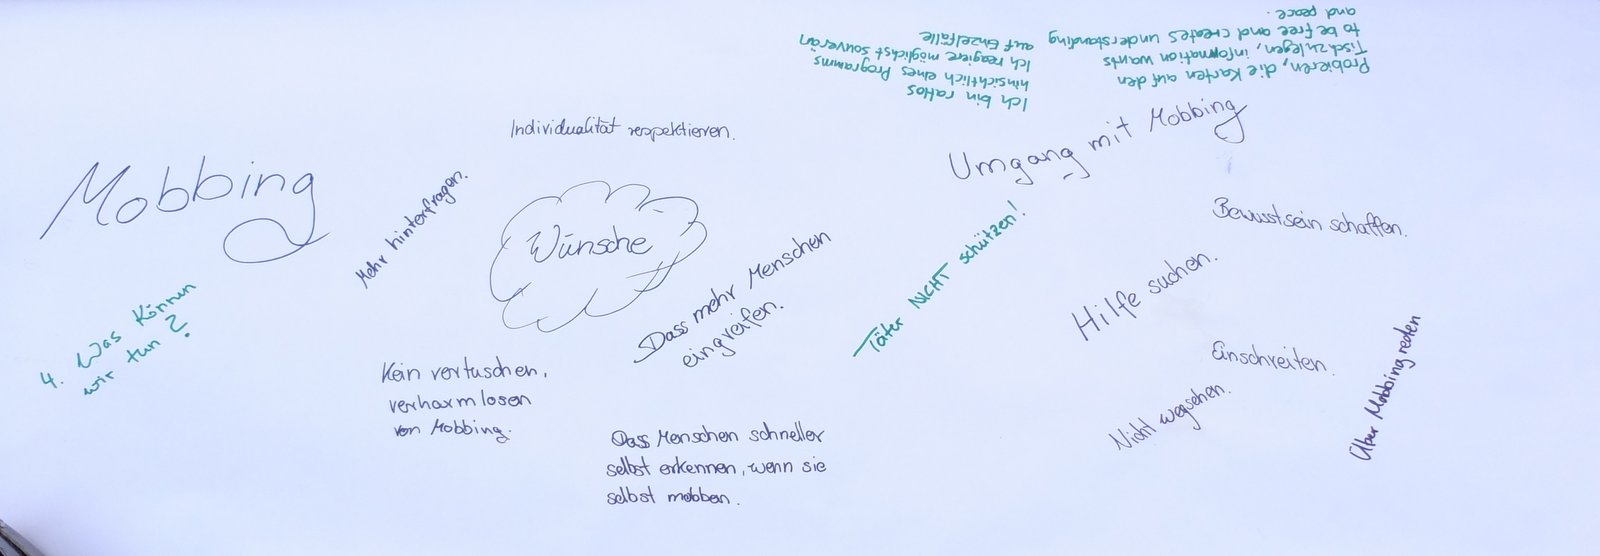 Mobbing
4. Was können
wir tun?
Individualität respektieren.
Mehr hinterfragen.
Wünsche
Dass mehr Menschen
eingreifen.
Kein vertuschen,
verharmlosen
von Mobbing.
Dass Menschen schneller
selbst erkennen, wenn sie
selbst mobben.
Ich bin ratlos
hinsichtlich eines Programms
Ich reagiere möglichst souverän
auf Einzelfälle
Probieren, die Karten auf den
Tisch zu legen, information wants
to be free and creates understanding
and peace.
Umgang mit Mobbing
Täter NICHT schützen!
Bewusstsein schaffen.
Hilfe suchen.
Einschreiten.
Nicht wegsehen.
Über Mobbing reden